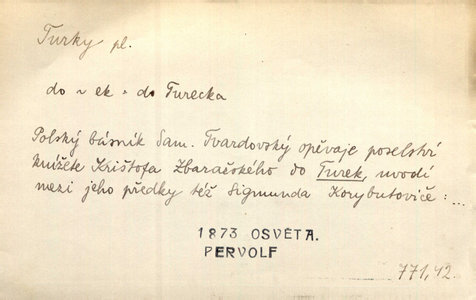 Turky pl.
do ~ ek = do Turecka
Polský básník Sam. Tvardovský opěvaje poselství
knížete Krištofa Zbaražského do Turek, uvodí
mezi jeho předky též Sigmunda Korybutoviče: ...
1873 OSVĚTA.
PERVOLF
771,12.